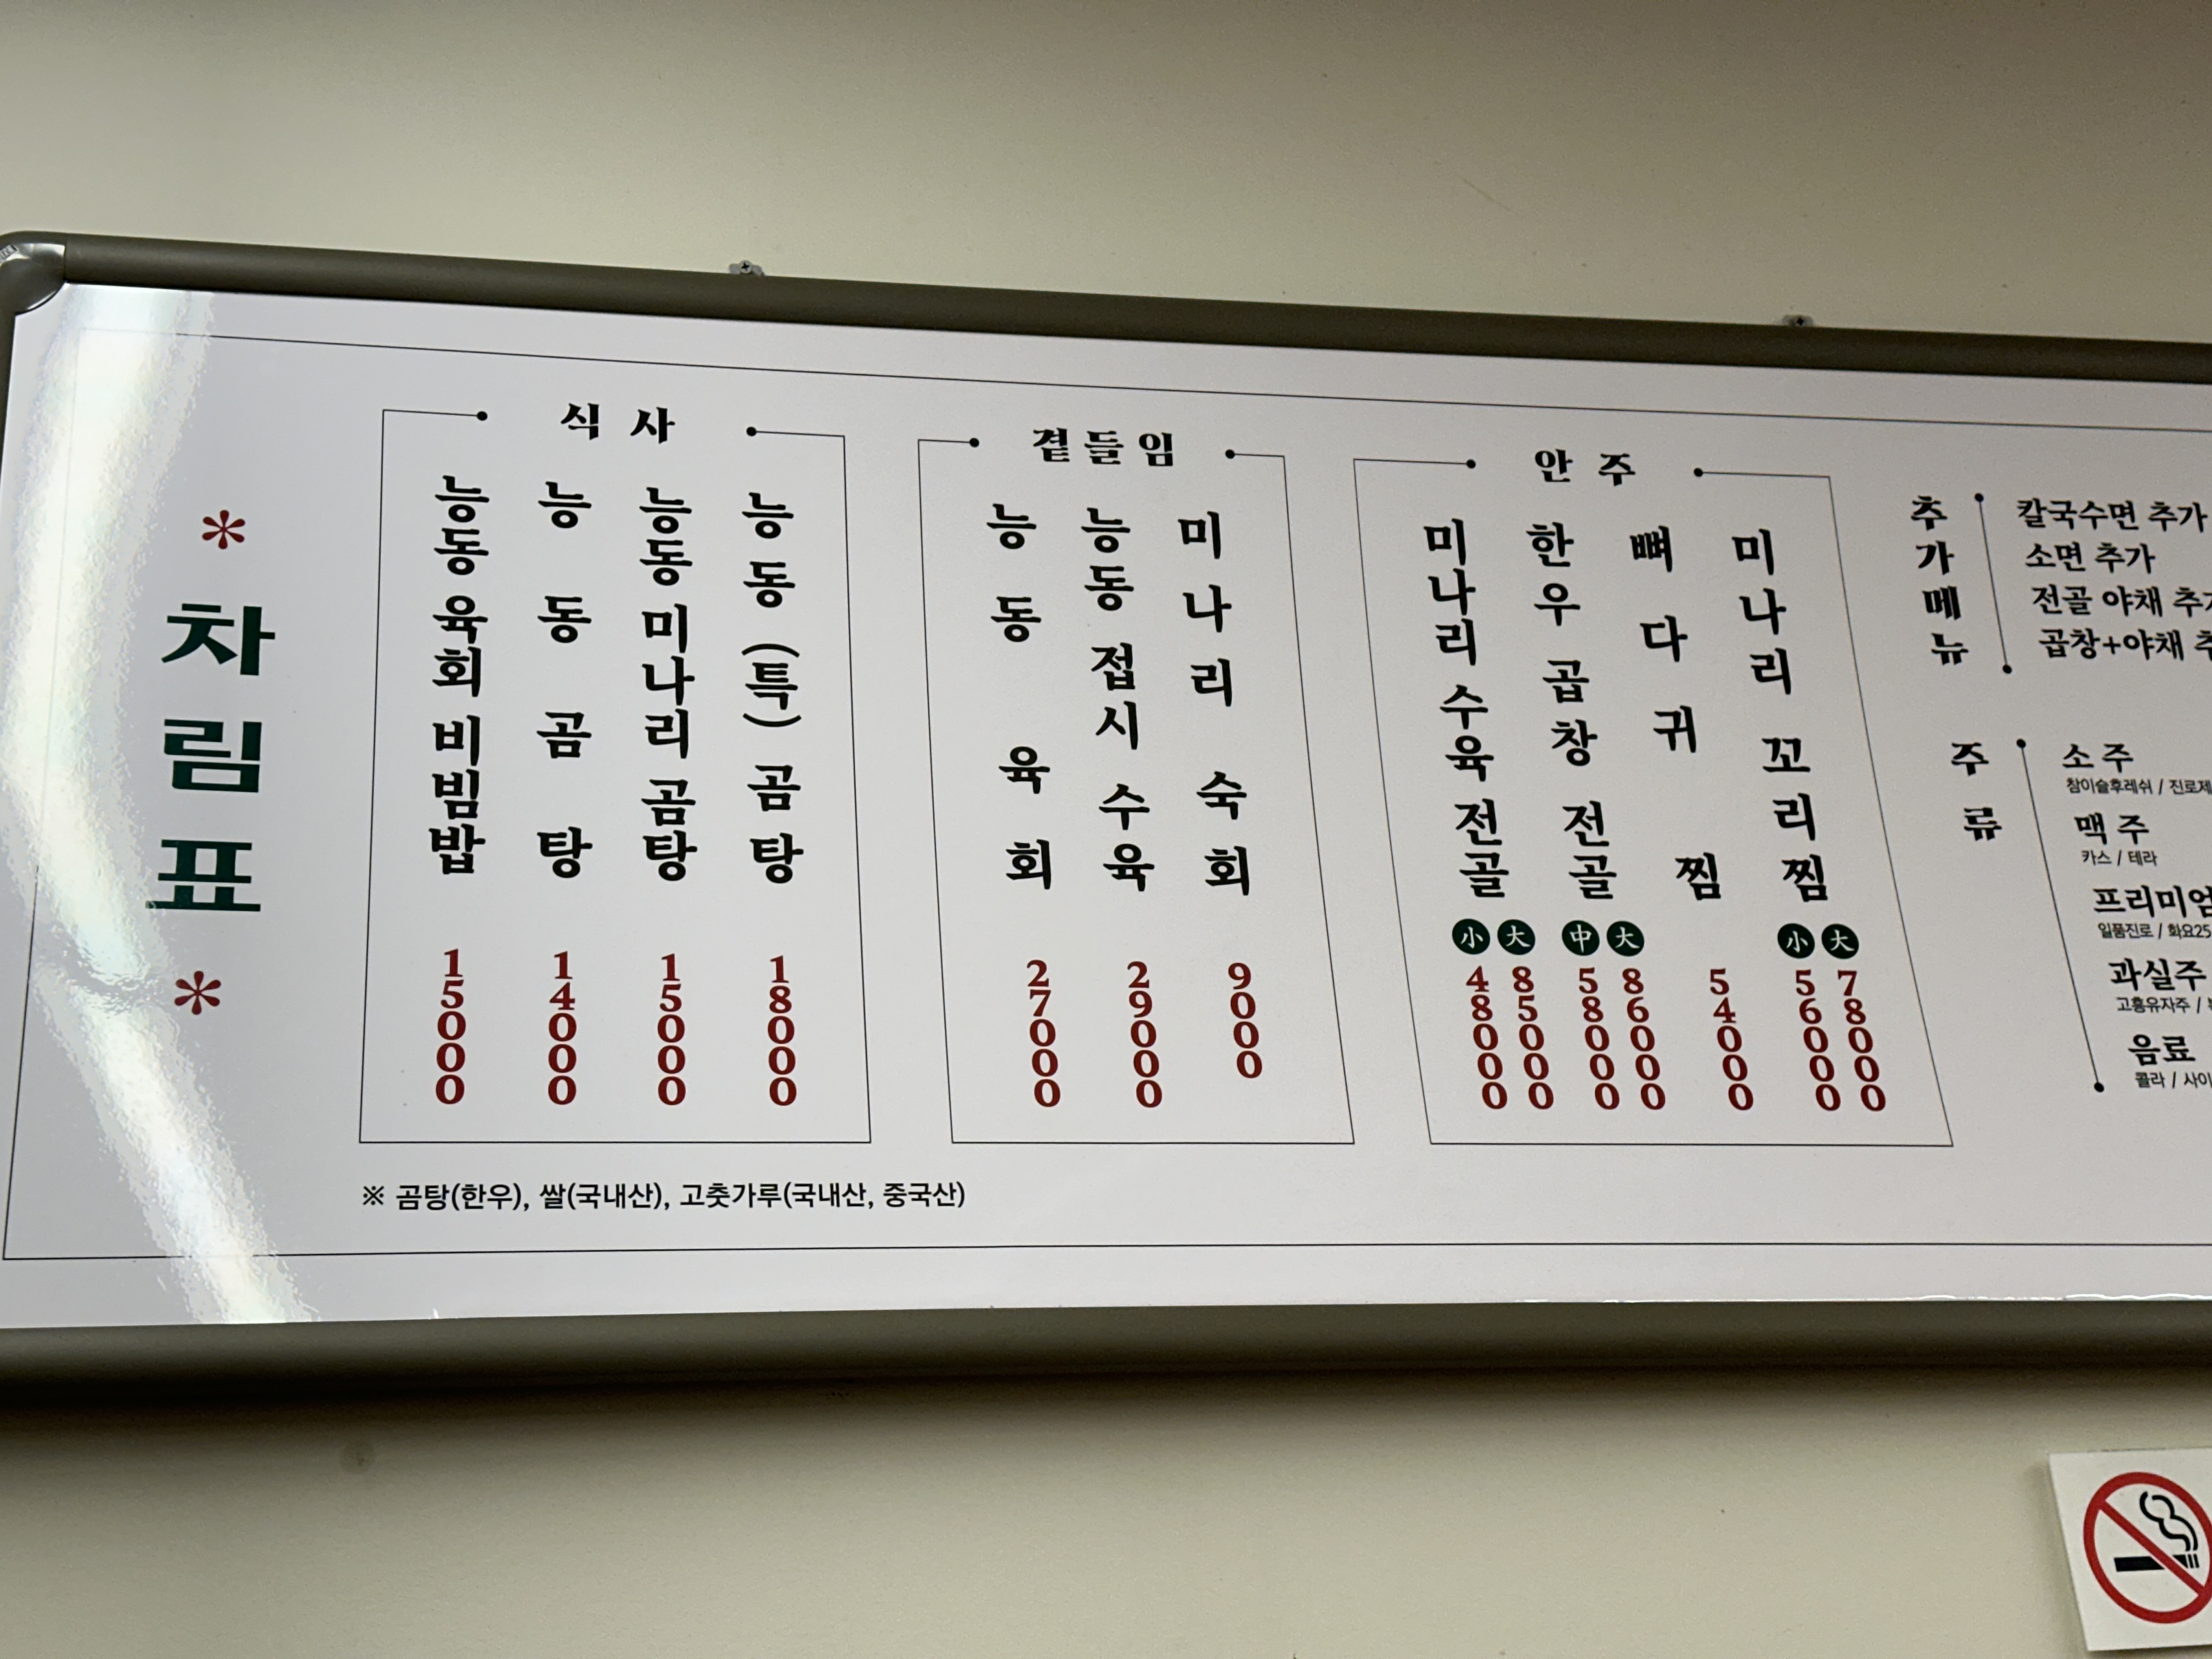 * 차림표 *
식사
능동 육회 비빔밥 15000
능동 곰탕 14000
능동 미나리 곰탕 15000
능동 (특) 곰탕 18000
곁들임
능동 육회 27000
능동 접시 수육 29000
미나리 숙회 9000
안주
미나리 수육 전골 小 48000 大 85000
한우 곱창 전골 中 58000 大 86000
뼈다귀 찜 54000
미나리 꼬리찜 小 56000 大 78000
추가메뉴
칼국수면 추가
소면 추가
전골 야채
곱창+야채
주류
소주
참이슬후레쉬 /
맥주
카스 / 테라
일품진로 / 화요25
과실주
고흥유자주 /
음료
콜라 /
※ 곰탕(한우), 쌀(국내산), 고춧가루(국내산, 중국산)